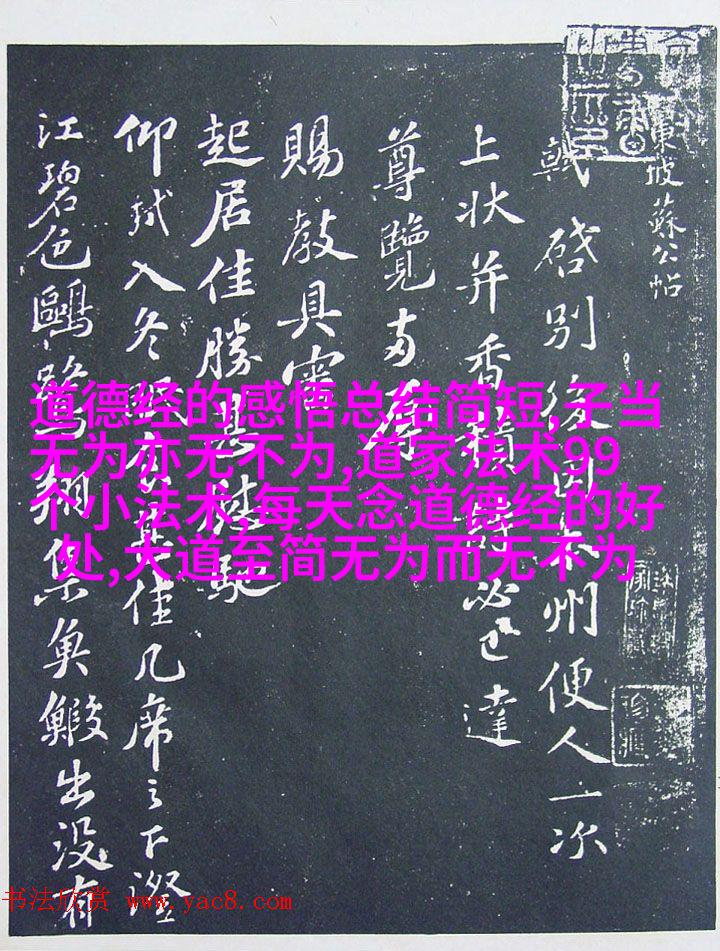 東坡蘇公帖
軾啓別後因本州便人一次
上状并香積詩必已達
尊覽辱
賜教具審
起居佳勝感慰馳
仰軾入冬眠食甚佳几席之下澄
江碧色鷗鷺翔集魚鰕出没有
道德经的感悟总结简短,子当
无为亦无不为,道家法术99
个小法术,每天念道德经的好
处,大道至简无为而无不为
书法欣赏 www.yac8.com